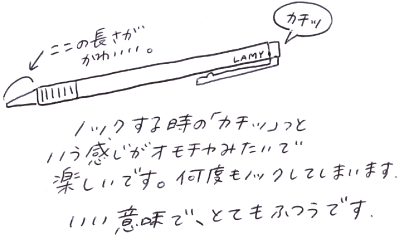 ここの長さが
かわいい。
カチッ
LAMY
ノックする時の「カチッ」っと
いう感じがオモチャみたいで
楽しいです。何度もノックしてしまいます.
いい意味で、とてもふつうです.